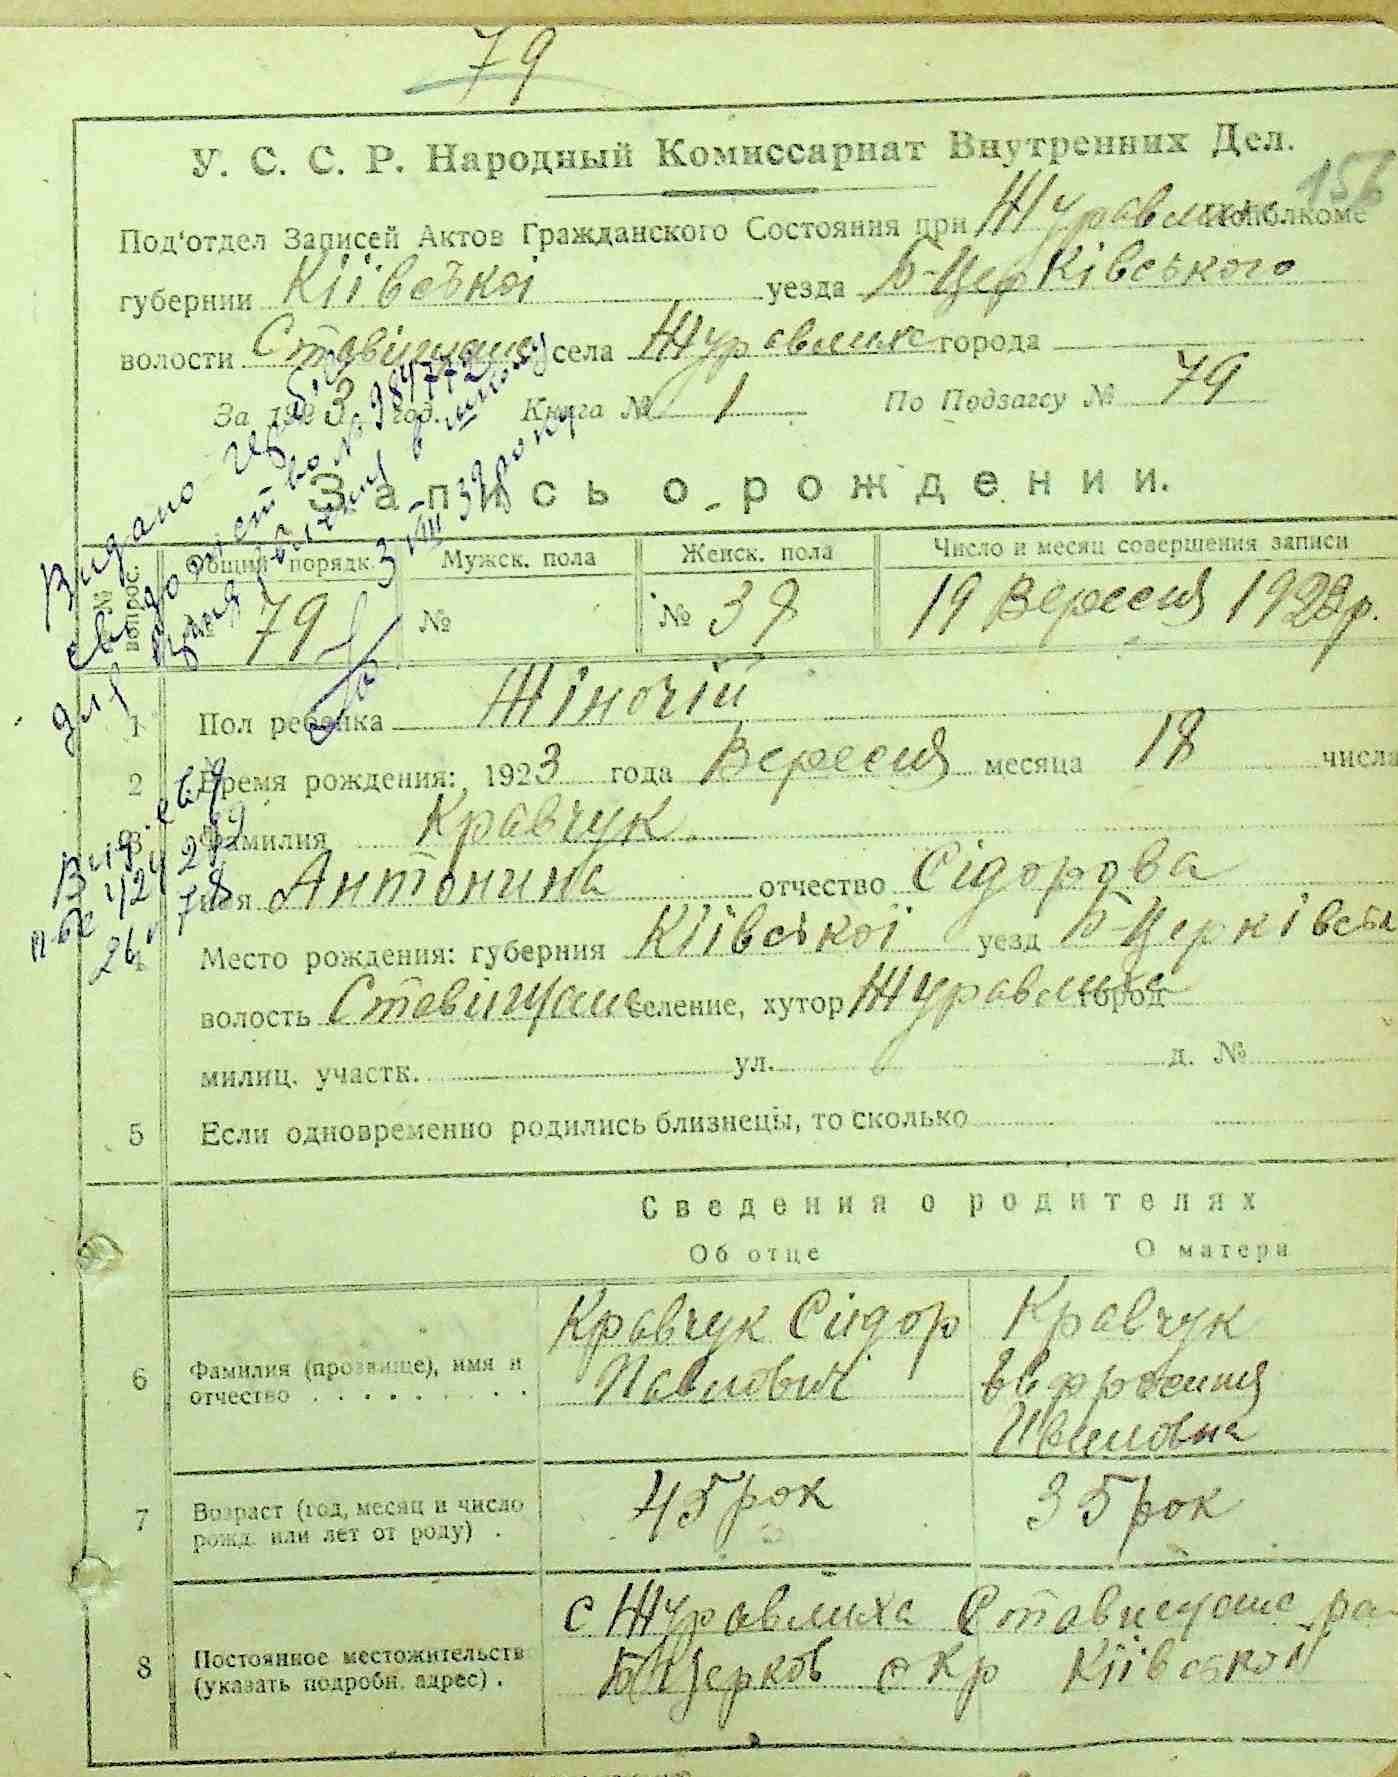 79
156
У. С. С. Р. Народный Комиссариат Внутренних Дел.
Под'отдел Записей Актов Гражданского Состояния при Журавлиха исполкоме
губернии Кіівської уезда Б-Церківського
волости Ставіщане села Журавлиха города
За 1923 год. Книга № 1 По Подзагсу № 79
Запись о рождении.
№ вопрос. Общий порядк. Мужск. пола Женск. пола Число и месяц совершения записи
№ 79 № № 39 19 Вересня 1923 р.
1 Пол ребенка Жіночій
2 Время рождения: 1923 года Вересня месяца 18 числа
3 Фамилия Кравчук
имя Антонина отчество Сідорова
4 Место рождения: губерния Кіівської уезд Б-Церківськ
волость Ставіщане селение, хутор Журавлиха город
милиц. участк. ул. д. №
5 Если одновременно родились близнецы, то сколько
Сведения о родителях
Об отце О матери
6 Фамилия (прозвище), имя и отчество Кравчук Сидор Павлович Кравчук Ивановна
7 Возраст (год, месяц и число рожд. или лет от роду) 45 рок 35 рок
8 Постоянное местожительств (указать подробн. адрес) с Журавлиха Ставищане ра-
БЦерков окр Кіівской
Видано
свидоцтво № 984772
для в школу
3 VIII 39 року